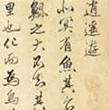 逍遥遊
北冥有魚其名
鯤之大不知其
里也化而為鳥